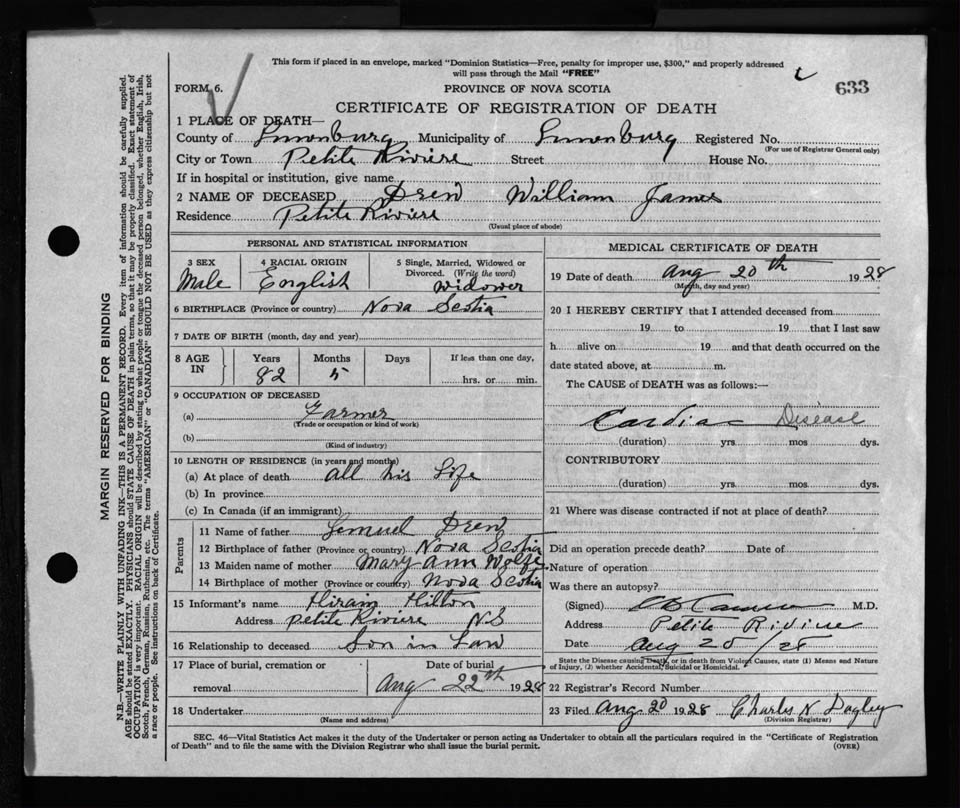 This form if placed in an envelope, marked "Dominion Statistics—Free, penalty for improper use, $300," and properly addressed
will pass through the Mail "FREE"
633
FORM 6.
PROVINCE OF NOVA SCOTIA
CERTIFICATE OF REGISTRATION OF DEATH
1 PLACE OF DEATH—
County of Lunenburg Municipality of Lunenburg Registered No.
(For use of Registrar General only)
City or Town Petite Riviere Street House No.
If in hospital or institution, give name
2 NAME OF DECEASED Drew William James
Residence Petite Riviere
(Usual place of abode)
PERSONAL AND STATISTICAL INFORMATION
3 SEX
Male
4 RACIAL ORIGIN
English
5 Single, Married, Widowed or
Divorced. (Write the word)
Widower
6 BIRTHPLACE (Province or country) Nova Scotia
7 DATE OF BIRTH (month, day and year)
8 AGE IN
Years Months Days If less than one day,
82 5 hrs. or min.
9 OCCUPATION OF DECEASED
(a) Farmer
(Trade or occupation or kind of work)
(b)
(Kind of industry)
10 LENGTH OF RESIDENCE (in years and months)
(a) At place of death all his Life
(b) In province
(c) In Canada (if an immigrant)
Parents
11 Name of father Lemuel Drew
12 Birthplace of father (Province or country) Nova Scotia
13 Maiden name of mother Mary Ann Wolfe
14 Birthplace of mother (Province or country) Nova Scotia
15 Informant's name Hiram Hilton
Address Petite Riviere NS
16 Relationship to deceased Son in Law
17 Place of burial, cremation or
removal
Date of burial
Aug 22th 1928
18 Undertaker
(Name and address)
MEDICAL CERTIFICATE OF DEATH
19 Date of death Aug 20th 1928
(Month, day and year)
20 I HEREBY CERTIFY that I attended deceased from
19 to 19 that I last saw
h alive on 19 and that death occurred on the
date stated above, at m.
The CAUSE of DEATH was as follows:—
Cardiac Disease
(duration) yrs. mos dys.
CONTRIBUTORY
(duration) yrs. mos. dys.
21 Where was disease contracted if not at place of death?
Did an operation precede death? Date of
Nature of operation
Was there an autopsy?
(Signed) M.D.
Address Petite Riviere
Date Aug 20/28
State the Disease causing Death, or in death from Violent Causes, state (1) Means and Nature
of Injury, (2) whether Accidental, Suicidal or Homicidal.
22 Registrar's Record Number
23 Filed Aug 20 1928 Charles N Dagley
(Division Registrar)
SEC. 46—Vital Statistics Act makes it the duty of the Undertaker or person acting as Undertaker to obtain all the particulars required in the "Certificate of Registration
of Death" and to file the same with the Division Registrar who shall issue the burial permit.
(OVER)
MARGIN RESERVED FOR BINDING
N.B.—WRITE PLAINLY WITH UNFADING INK—THIS IS A PERMANENT RECORD. Every item of information should be carefully supplied.
AGE should be stated EXACTLY. PHYSICIANS should STATE CAUSE OF DEATH in plain terms, so that it may be properly classified. Exact statement of
OCCUPATION is very important. RACIAL ORIGIN will be described by stating to what people or tongue the deceased person belonged, whether English, Irish,
Scotch, French, German, Russian, Ruthenian, etc. The terms "AMERICAN" or "CANADIAN" SHOULD NOT BE USED as they express citizenship but not
a race or people. See instructions on back of Certificate.